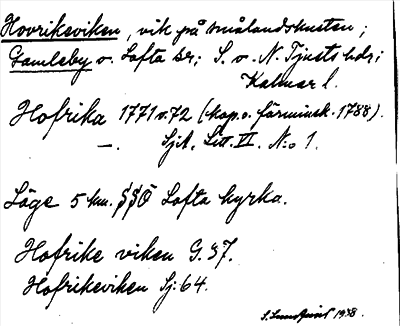 Hovriksviken, vik på smålandskusten;
Gamleby o. Lofta sr; S. o. N. Tjusts hdr;
Kalmar l.
Hofrika 1771 o. 72 (kop. o. förminsk. 1788).
—. SjA, Litt. VI. N:o 1.
Läge 5 km. SSÖ Lofta kyrka.
Hofrike viken G. 37.
Hofrikeviken Sj: 64.
S. Lundqvist 1938.